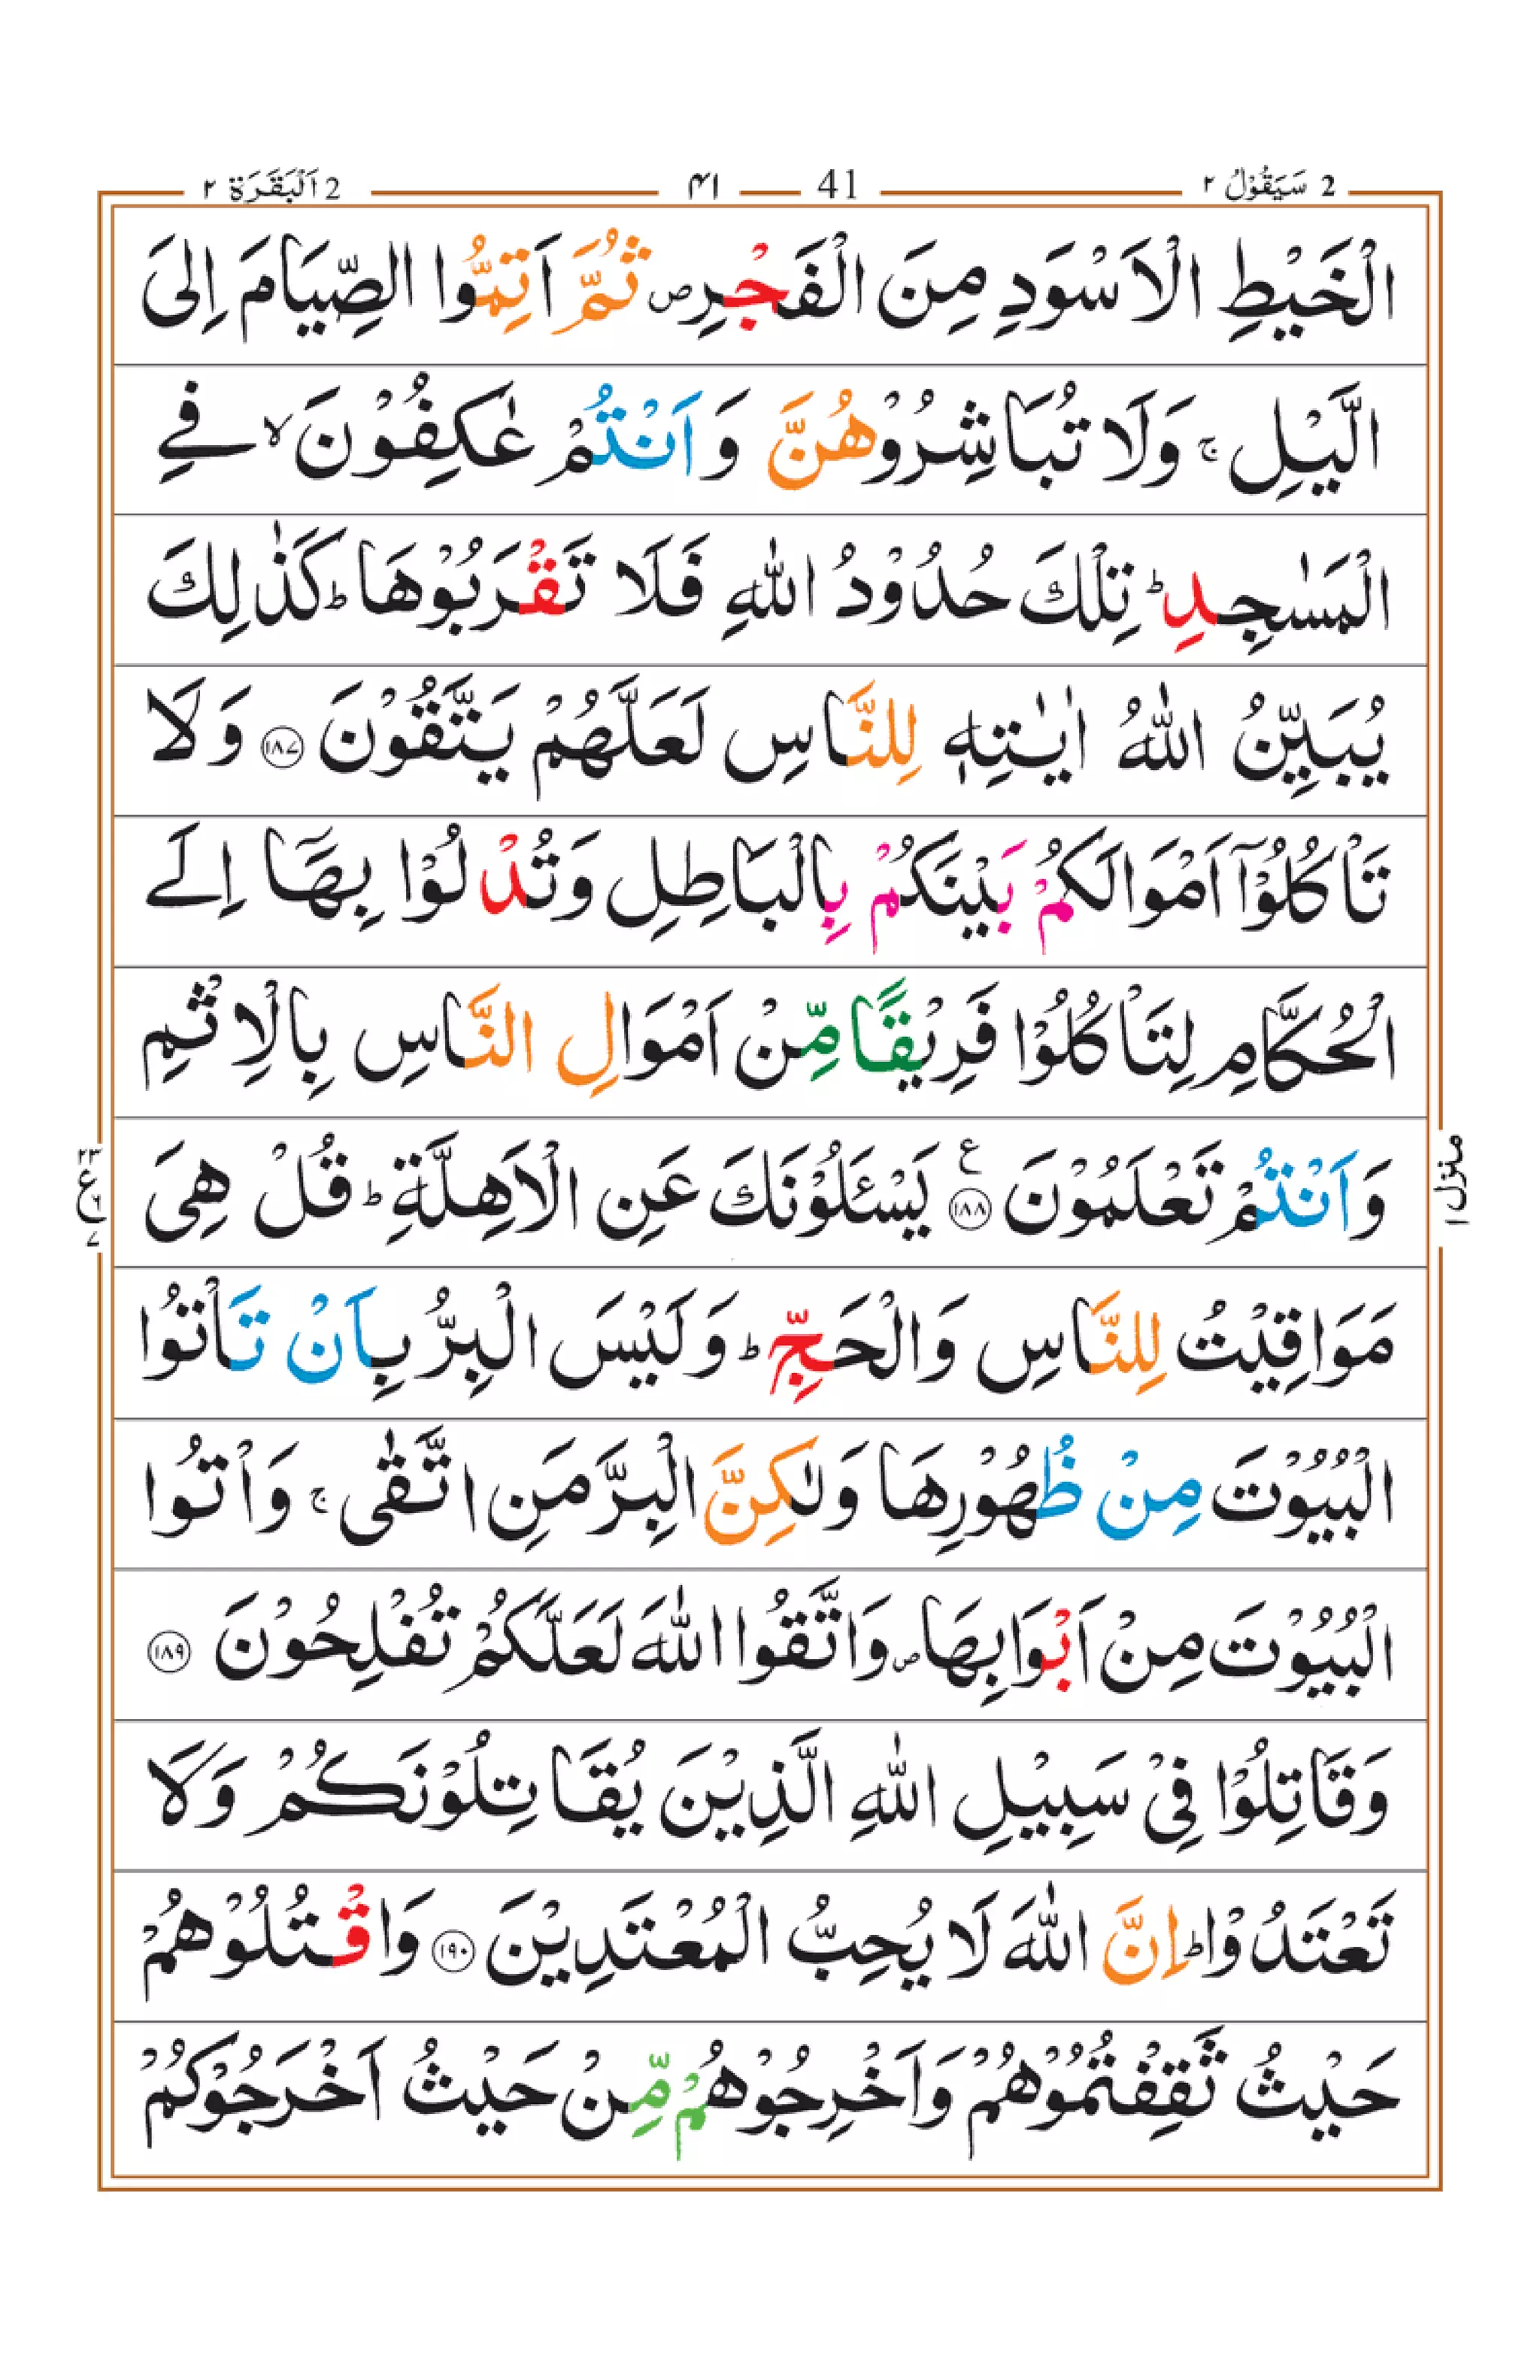 2 سَيَقُوْلُ ٢
41 ۴۱
2 اَلْبَقَرَة ٢
الْخَيْطِ الْاَسْوَدِ مِنَ الْفَجْرِ ۪ ثُمَّ اَتِمُّوا الصِّيَامَ اِلَى
الَّيْلِ ۚ وَلَا تُبَاشِرُوْهُنَّ وَاَنْتُمْ عٰكِفُوْنَ ۙ فِے
الْمَسٰجِدِ ؕ تِلْكَ حُدُوْدُ اللّٰهِ فَلَا تَقْرَبُوْهَا ؕ كَذٰلِكَ
يُبَيِّنُ اللّٰهُ اٰيٰتِهٖ لِلنَّاسِ لَعَلَّهُمْ يَتَّقُوْنَ ﴿١٨٧﴾ وَلَا
تَاْكُلُوْۤا اَمْوَالَكُمْ بَيْنَكُمْ بِالْبَاطِلِ وَتُدْلُوْا بِهَاۤ اِلَے
الْحُكَّامِ لِتَاْكُلُوْا فَرِيْقًا مِّنْ اَمْوَالِ النَّاسِ بِالْاِثْمِ
وَاَنْتُمْ تَعْلَمُوْنَ ﴿١٨٨﴾ ع يَسْـَٔلُوْنَكَ عَنِ الْاَهِلَّةِ ؕ قُلْ هِىَ
مَوَاقِيْتُ لِلنَّاسِ وَالْحَجِّ ؕ وَلَيْسَ الْبِرُّ بِاَنْ تَاْتُوا
الْبُيُوْتَ مِنْ ظُهُوْرِهَا وَلٰكِنَّ الْبِرَّ مَنِ اتَّقٰى ۚ وَاْتُوا
الْبُيُوْتَ مِنْ اَبْوَابِهَا ۪ وَاتَّقُوا اللّٰهَ لَعَلَّكُمْ تُفْلِحُوْنَ ﴿١٨٩﴾
وَقَاتِلُوْا فِىْ سَبِيْلِ اللّٰهِ الَّذِيْنَ يُقَاتِلُوْنَكُمْ وَلَا
تَعْتَدُوْا ؕ اِنَّ اللّٰهَ لَا يُحِبُّ الْمُعْتَدِيْنَ ﴿١٩٠﴾ وَاقْتُلُوْهُمْ
حَيْثُ ثَقِفْتُمُوْهُمْ وَاَخْرِجُوْهُمْ مِّنْ حَيْثُ اَخْرَجُوْكُمْ
منزل ١
٢٣
ع ٦
٧